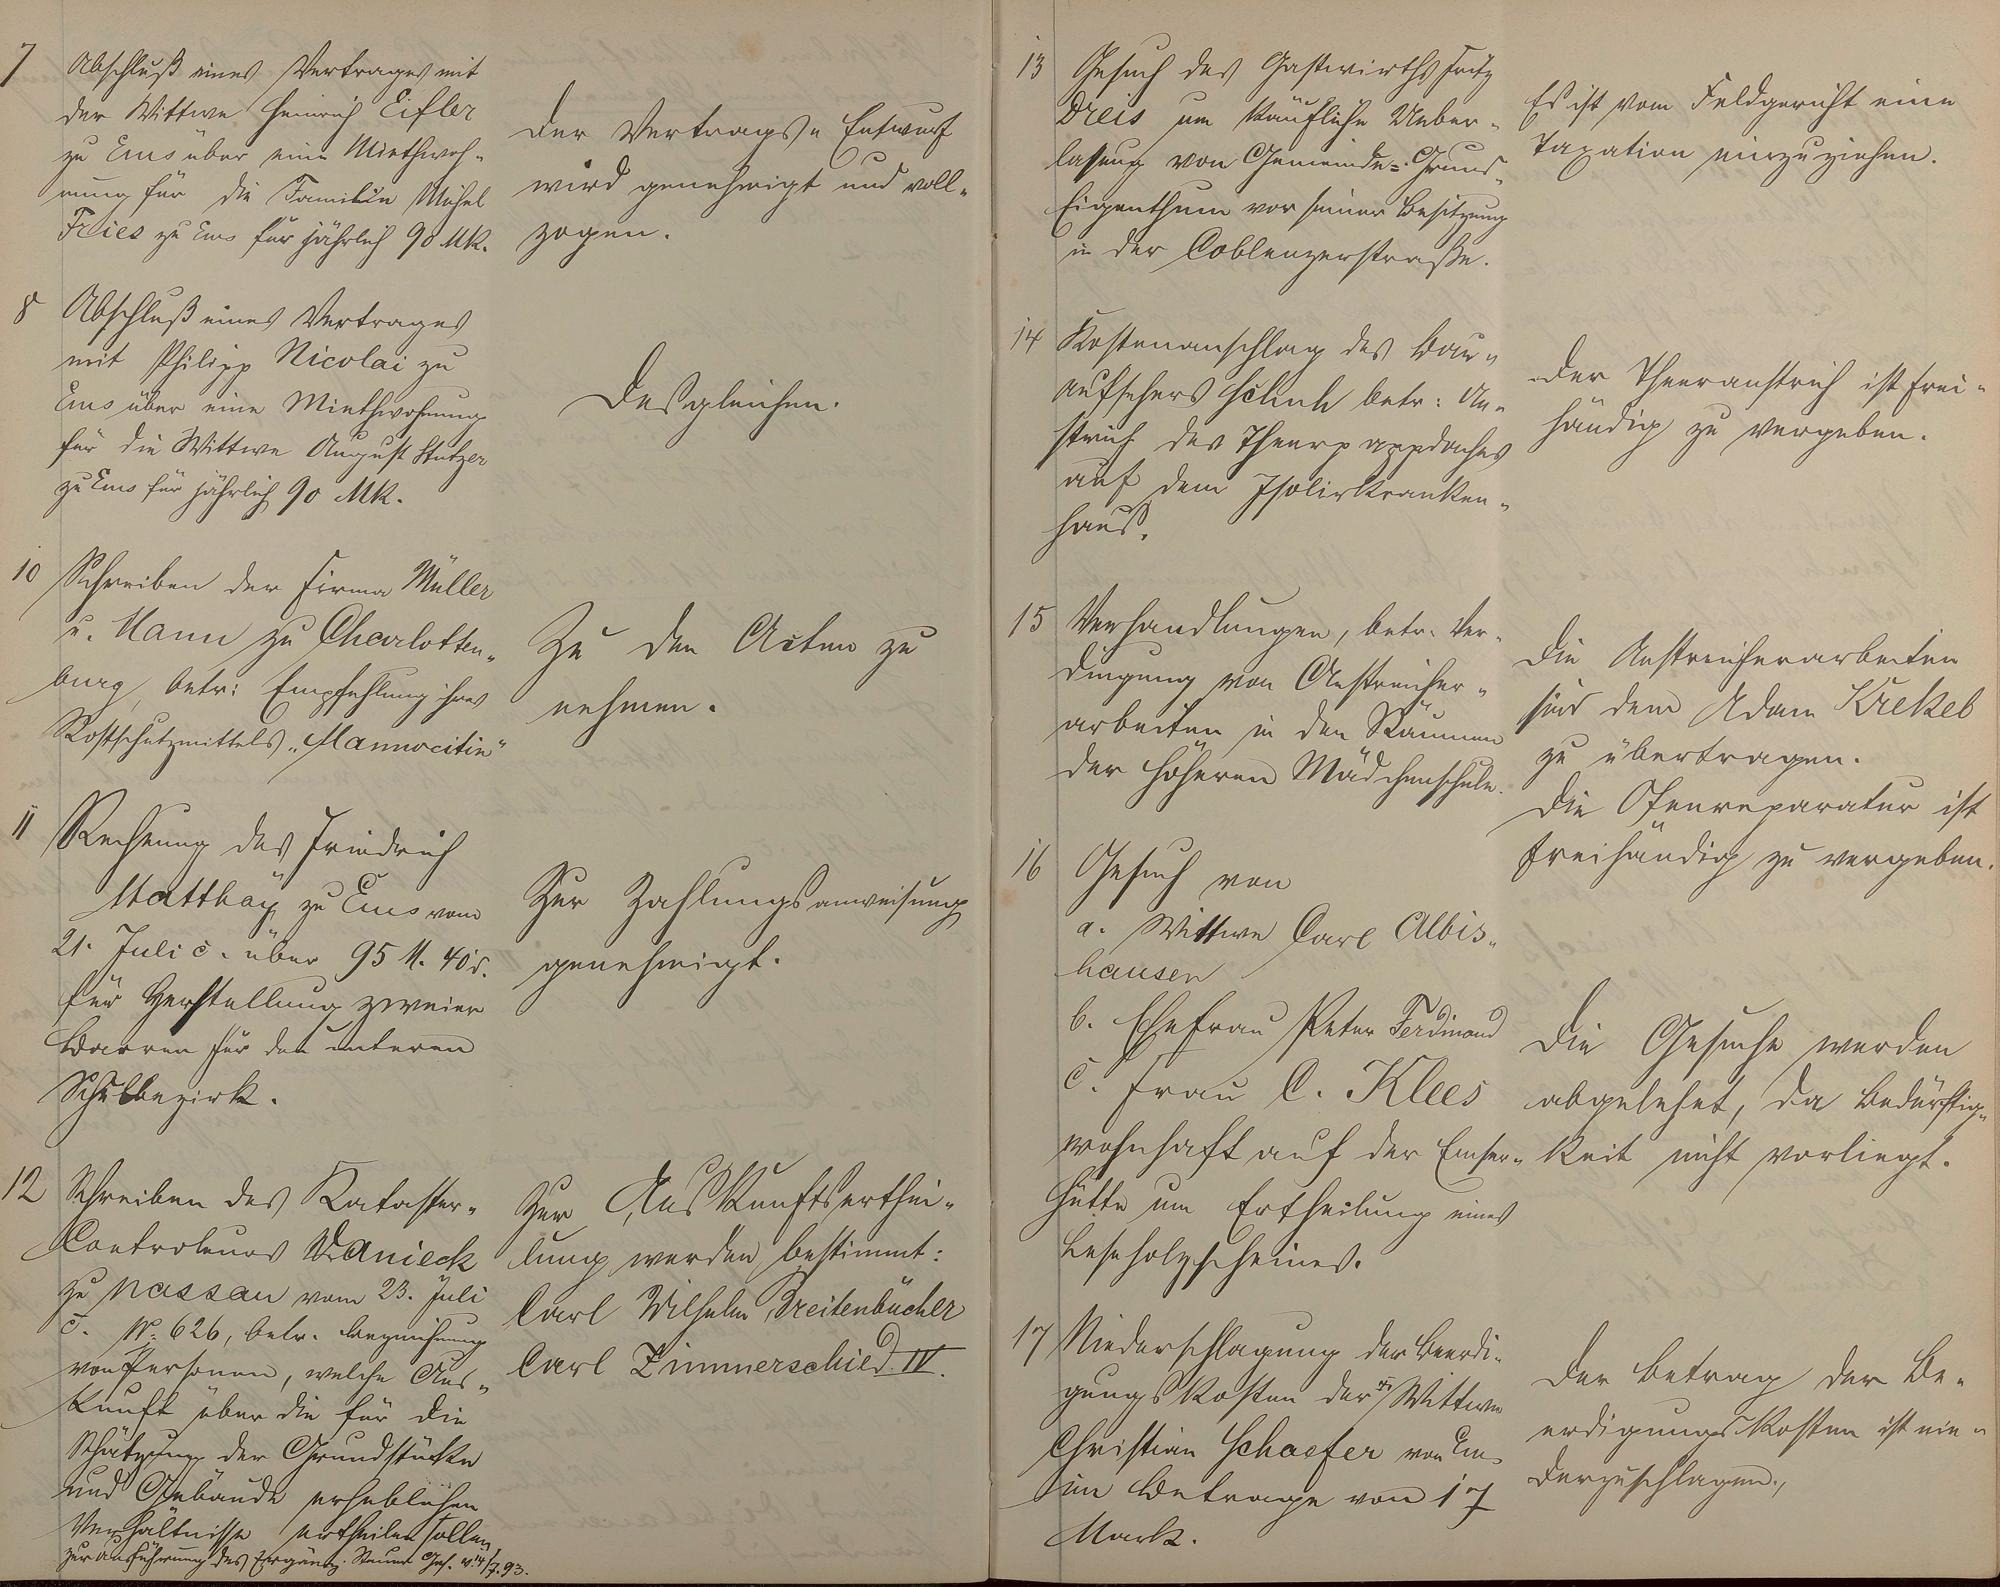 7 Abschluß eines Vertrages mit
der Wittwe Heinrich Eifler
zu Ems über eine Miethwoh-
nung für die Familie Michel
Fries zu Ems für jährlich 90 Mk.
Der Vertrags-Entwurf
wird genehmigt und voll-
zogen.
8 Abschluß eines Vertrages
mit Philipp Nicolai zu
Ems über eine Miethwohnung
für die Wittwe August Stutzer
zu Ems für jährlich 90 Mk.
Desgleichen.
10 Schreiben der Firma Müller
u. Mann zu Charlotten-
burg, betr: Empfehlung ihres
Rostschutzmittels „Mannocitin"
Zu den Acten zu
nehmen.
11 Rechnung des Friedrich
Matthäy zu Ems vom
21. Juli c. über 95 M. 40 d.
für Herstellung zweier
Barren für den unteren
Schulbezirk.
Zur Zahlungsanweisung
genehmigt.
12 Schreiben des Kataster-
Controleurs Wanieck
zu Nassau vom 23. Juli
c. No. 626, betr. Bezeichnung
von Personen, welche Aus-
kunft über die für die
Schätzung der Grundstücke
und Gebäude erheblichen
Verhältnisse ertheilen sollen
zur Ausführung des Ergänz. Steuer Ges. v. 14/7.93.
Zur Auskunftserthei-
lung werden bestimmt:
Carl Wilhelm Breitenbücher
Carl Zimmerschied IV.
13 Gesuch des Gastwirths Fritz
Dreis um käufliche Ueber-
lassung von Gemeinde-Grund-
Eigenthum vor seiner Besitzung
in der Coblenzerstraße.
Es ist vom Feldgericht eine
Taxation einzuziehen.
14 Kostenanschlag des Bau-
aufsehers Schenk betr: An-
strich des Theerpappdaches
auf dem Isolirkranken-
haus.
Der Theeranstrich ist frei-
händig zu vergeben.
15 Verhandlungen, betr. Ver-
dingung von Anstreicher-
arbeiten in den Räumen
der höheren Mädchenschule.
Die Anstreicherarbeiten
sind dem Adam Krekel
zu übertragen.
Die Ofenreparatur ist
freihändig zu vergeben.
16 Gesuch von
a. Wittwe Carl Albis-
hausen
b. Ehefrau Peter Ferdinand
c. Frau C. Klees
wohnhaft auf der Emser-
hütte um Ertheilung eines
Leseholzscheines.
Die Gesuche werden
abgelehnt, da Bedürftig-
keit nicht vorliegt.
17 Niederschlagung der Beerdi-
gungskosten der Wittwe
Christian Schaefer von Ems
im Betrage von 17
Mark.
Der Betrag der Be-
erdigungskosten ist nie-
derzuschlagen.